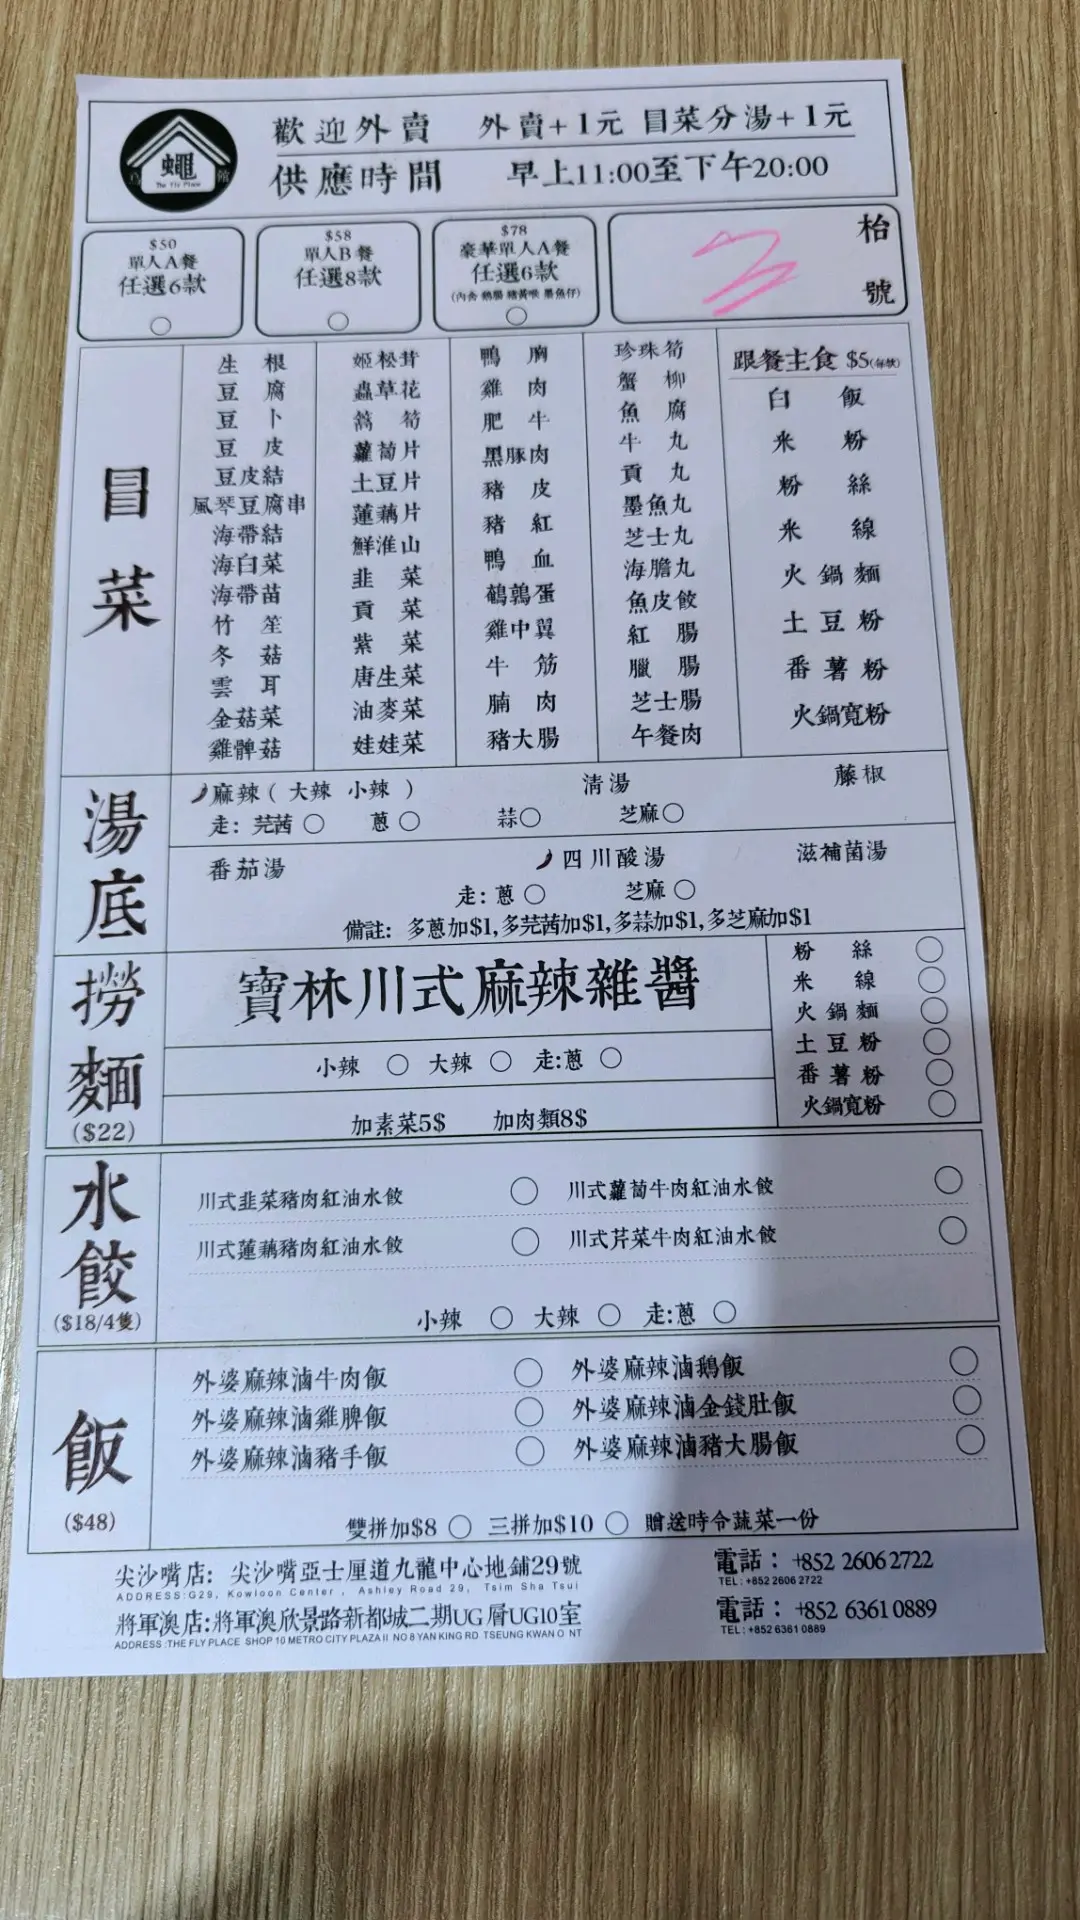 歡迎外賣 外賣+1元 冒菜分湯+1元
供應時間 早上11:00至下午20:00
蠅
The Fly Place
館
$50
單人A餐
任選6款
$58
單人B餐
任選8款
$78
豪華單人A餐
任選6款
(內含 鵝腸 豬黃喉 墨魚仔)
枱
號
3
冒菜
生根
豆腐
豆卜
豆皮
豆皮結
風琴豆腐串
海帶結
海白菜
海帶苗
竹笙
冬菇
雲耳
金菇菜
雞髀菇
姬松茸
蟲草花
篙筍
蘿蔔片
土豆片
蓮藕片
鮮淮山
韭菜
貢菜
紫菜
唐生菜
油麥菜
娃娃菜
鴨胸
雞肉
肥牛
黑豚肉
豬皮
豬紅
鴨血
鵪鶉蛋
雞中翼
牛筋
腩肉
豬大腸
珍珠筍
蟹柳
魚腐
牛丸
貢丸
墨魚丸
芝士丸
海膽丸
魚皮餃
紅腸
臘腸
芝士腸
午餐肉
跟餐主食 $5(每款)
白飯
米粉
粉絲
米線
火鍋麵
土豆粉
番薯粉
火鍋寬粉
湯底
麻辣(大辣 小辣) 清湯 藤椒
走: 芫茜 ○ 蔥 ○ 蒜○ 芝麻○
番茄湯 四川酸湯 滋補菌湯
走: 蔥 ○ 芝麻 ○
備註: 多蔥加$1,多芫茜加$1,多蒜加$1,多芝麻加$1
撈麵
($22)
寶林川式麻辣雜醬
小辣 ○ 大辣 ○ 走:蔥 ○
加素菜5$ 加肉類8$
粉絲 ○
米線 ○
火鍋麵 ○
土豆粉 ○
番薯粉 ○
火鍋寬粉 ○
水餃
($18/4隻)
川式韭菜豬肉紅油水餃 ○ 川式蘿蔔牛肉紅油水餃 ○
川式蓮藕豬肉紅油水餃 ○ 川式芹菜牛肉紅油水餃 ○
小辣 ○ 大辣 ○ 走:蔥 ○
飯
($48)
外婆麻辣滷牛肉飯 ○ 外婆麻辣滷鵝飯 ○
外婆麻辣滷雞脾飯 ○ 外婆麻辣滷金錢肚飯 ○
外婆麻辣滷豬手飯 ○ 外婆麻辣滷豬大腸飯 ○
雙拼加$8 ○ 三拼加$10 ○ 贈送時令蔬菜一份
尖沙嘴店: 尖沙嘴亞士厘道九龍中心地鋪29號 電話: +852 2606 2722
ADDRESS:G29, Kowloon Center, Ashley Road 29, Tsim Sha Tsui TEL:+852 2606 2722
將軍澳店:將軍澳欣景路新都城二期UG層UG10室 電話: +852 6361 0889
ADDRESS:THE FLY PLACE SHOP 10 METRO CITY PLAZA II NO 8 YAN KING RD TSEUNG KWAN O NT TEL:+852 6361 0889